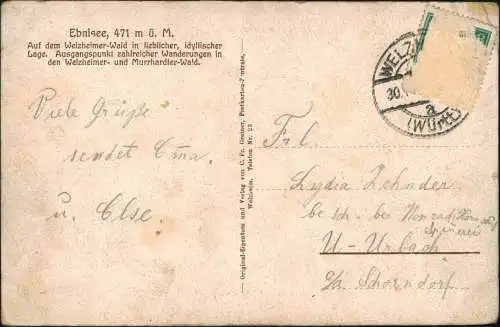 Ebnisee, 471 m ü. M.
Auf dem Welzheimer-Wald in lieblicher, idyllischer
Lage. Ausgangspunkt zahlreicher Wanderungen in
den Welzheimer- und Murrhardter-Wald.
Viele Grüße
sendet Oma
u. Else.
Original-Eigentum und Verlag von C. Fr. Greiner, Postkarten-Zentrale,
Welzheim. Telefon Nr. 23
WELZ
30.
a
(Württ
Frl.
Lydia Zehnder
besch. bei Konrad
Spinnerei
U-Urbach
b/a Schorndorf